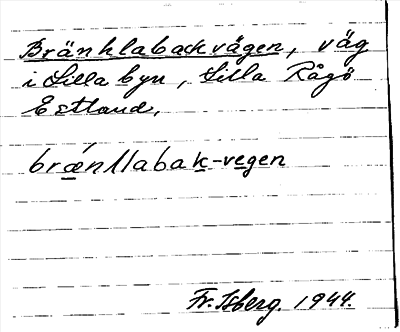 Bränklabackvägen, väg
i Lilla byn, Lilla Rågö
Estland.
brǽnklabak-vegen
Fr. Isberg. 1944.